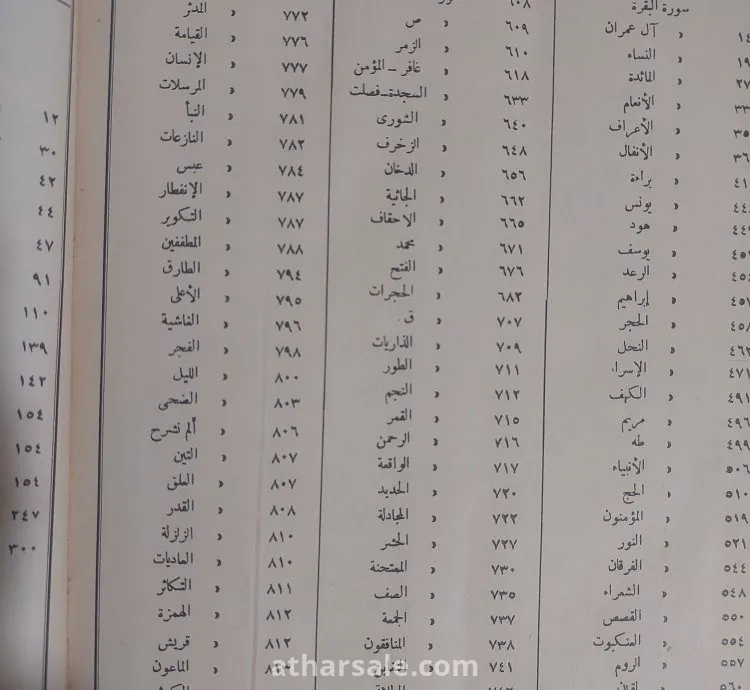 سورة البقرة
١٤ » آل عمران
١٩ » النساء
٢٧ » المائدة
٣٣ » الأنعام
٣٥ » الأعراف
٣٦ » الأنفال
٤١ » براءة
٤٤٤ » يونس
٤٤٩ » هود
٤٥٢ » يوسف
٤٥٤ » الرعد
٤٥٧ » إبراهيم
٤٥٨ » الحجر
٤٦٢ » النحل
٤٧١ » الإسراء
٤٩١ » الكهف
٤٩٦ » مريم
٤٩٩ » طه
٥٠٦ » الأنبياء
٥١٠ » الحج
٥١٩ » المؤمنون
٥٢١ » النور
٥٤٤ » الفرقان
٥٤٨ » الشعراء
٥٥٠ » القصص
٥٥٤ » العنكبوت
٥٥٧ » الروم
٥٦٠ » لقمان
٦٠٨
٦٠٩ » ص
٦١٠ » الزمر
٦١٨ » غافر ــ المؤمن
٦٣٣ » السجدة ــ فصلت
٦٤٠ » الشورى
٦٤٨ » الزخرف
٦٥٦ » الدخان
٦٦٢ » الجاثية
٦٦٥ » الاحقاف
٦٧١ » محمد
٦٧٦ » الفتح
٦٨٢ » الحجرات
٧٠٧ » ق
٧٠٩ » الذاريات
٧١١ » الطور
٧١٢ » النجم
٧١٥ » القمر
٧١٦ » الرحمن
٧١٧ » الواقعة
٧٢٠ » الحديد
٧٢٢ » المجادلة
٧٢٧ » الحشر
٧٣٠ » الممتحنة
٧٣٥ » الصف
٧٣٧ » الجمعة
٧٣٨ » المنافقون
٧٤١
٧٧٢ » المدثر
٧٧٦ » القيامة
٧٧٧ » الإنسان
٧٧٩ » المرسلات
٧٨١ » النبأ
٧٨٢ » النازعات
٧٨٤ » عبس
٧٨٧ » الإنفطار
٧٨٧ » التكوير
٧٨٨ » المطففين
٧٩٤ » الطارق
٧٩٥ » الأعلى
٧٩٦ » الغاشية
٧٩٨ » الفجر
٨٠٠ » الليل
٨٠٣ » الضحى
٨٠٦ » ألم نشرح
٨٠٧ » التين
٨٠٧ » العلق
٨٠٨ » القدر
٨١٠ » الزلزلة
٨١٠ » العاديات
٨١١ » التكاثر
٨١٢ » الهمزة
٨١٢ » قريش
» الماعون
١٢
٣٠
٤٢
٤٤
٤٧
٩١
١١٠
١٣٩
١٤٢
١٥٤
١٥٤
١٥٤
٢٤٧
٣٠٠
atharsale.com